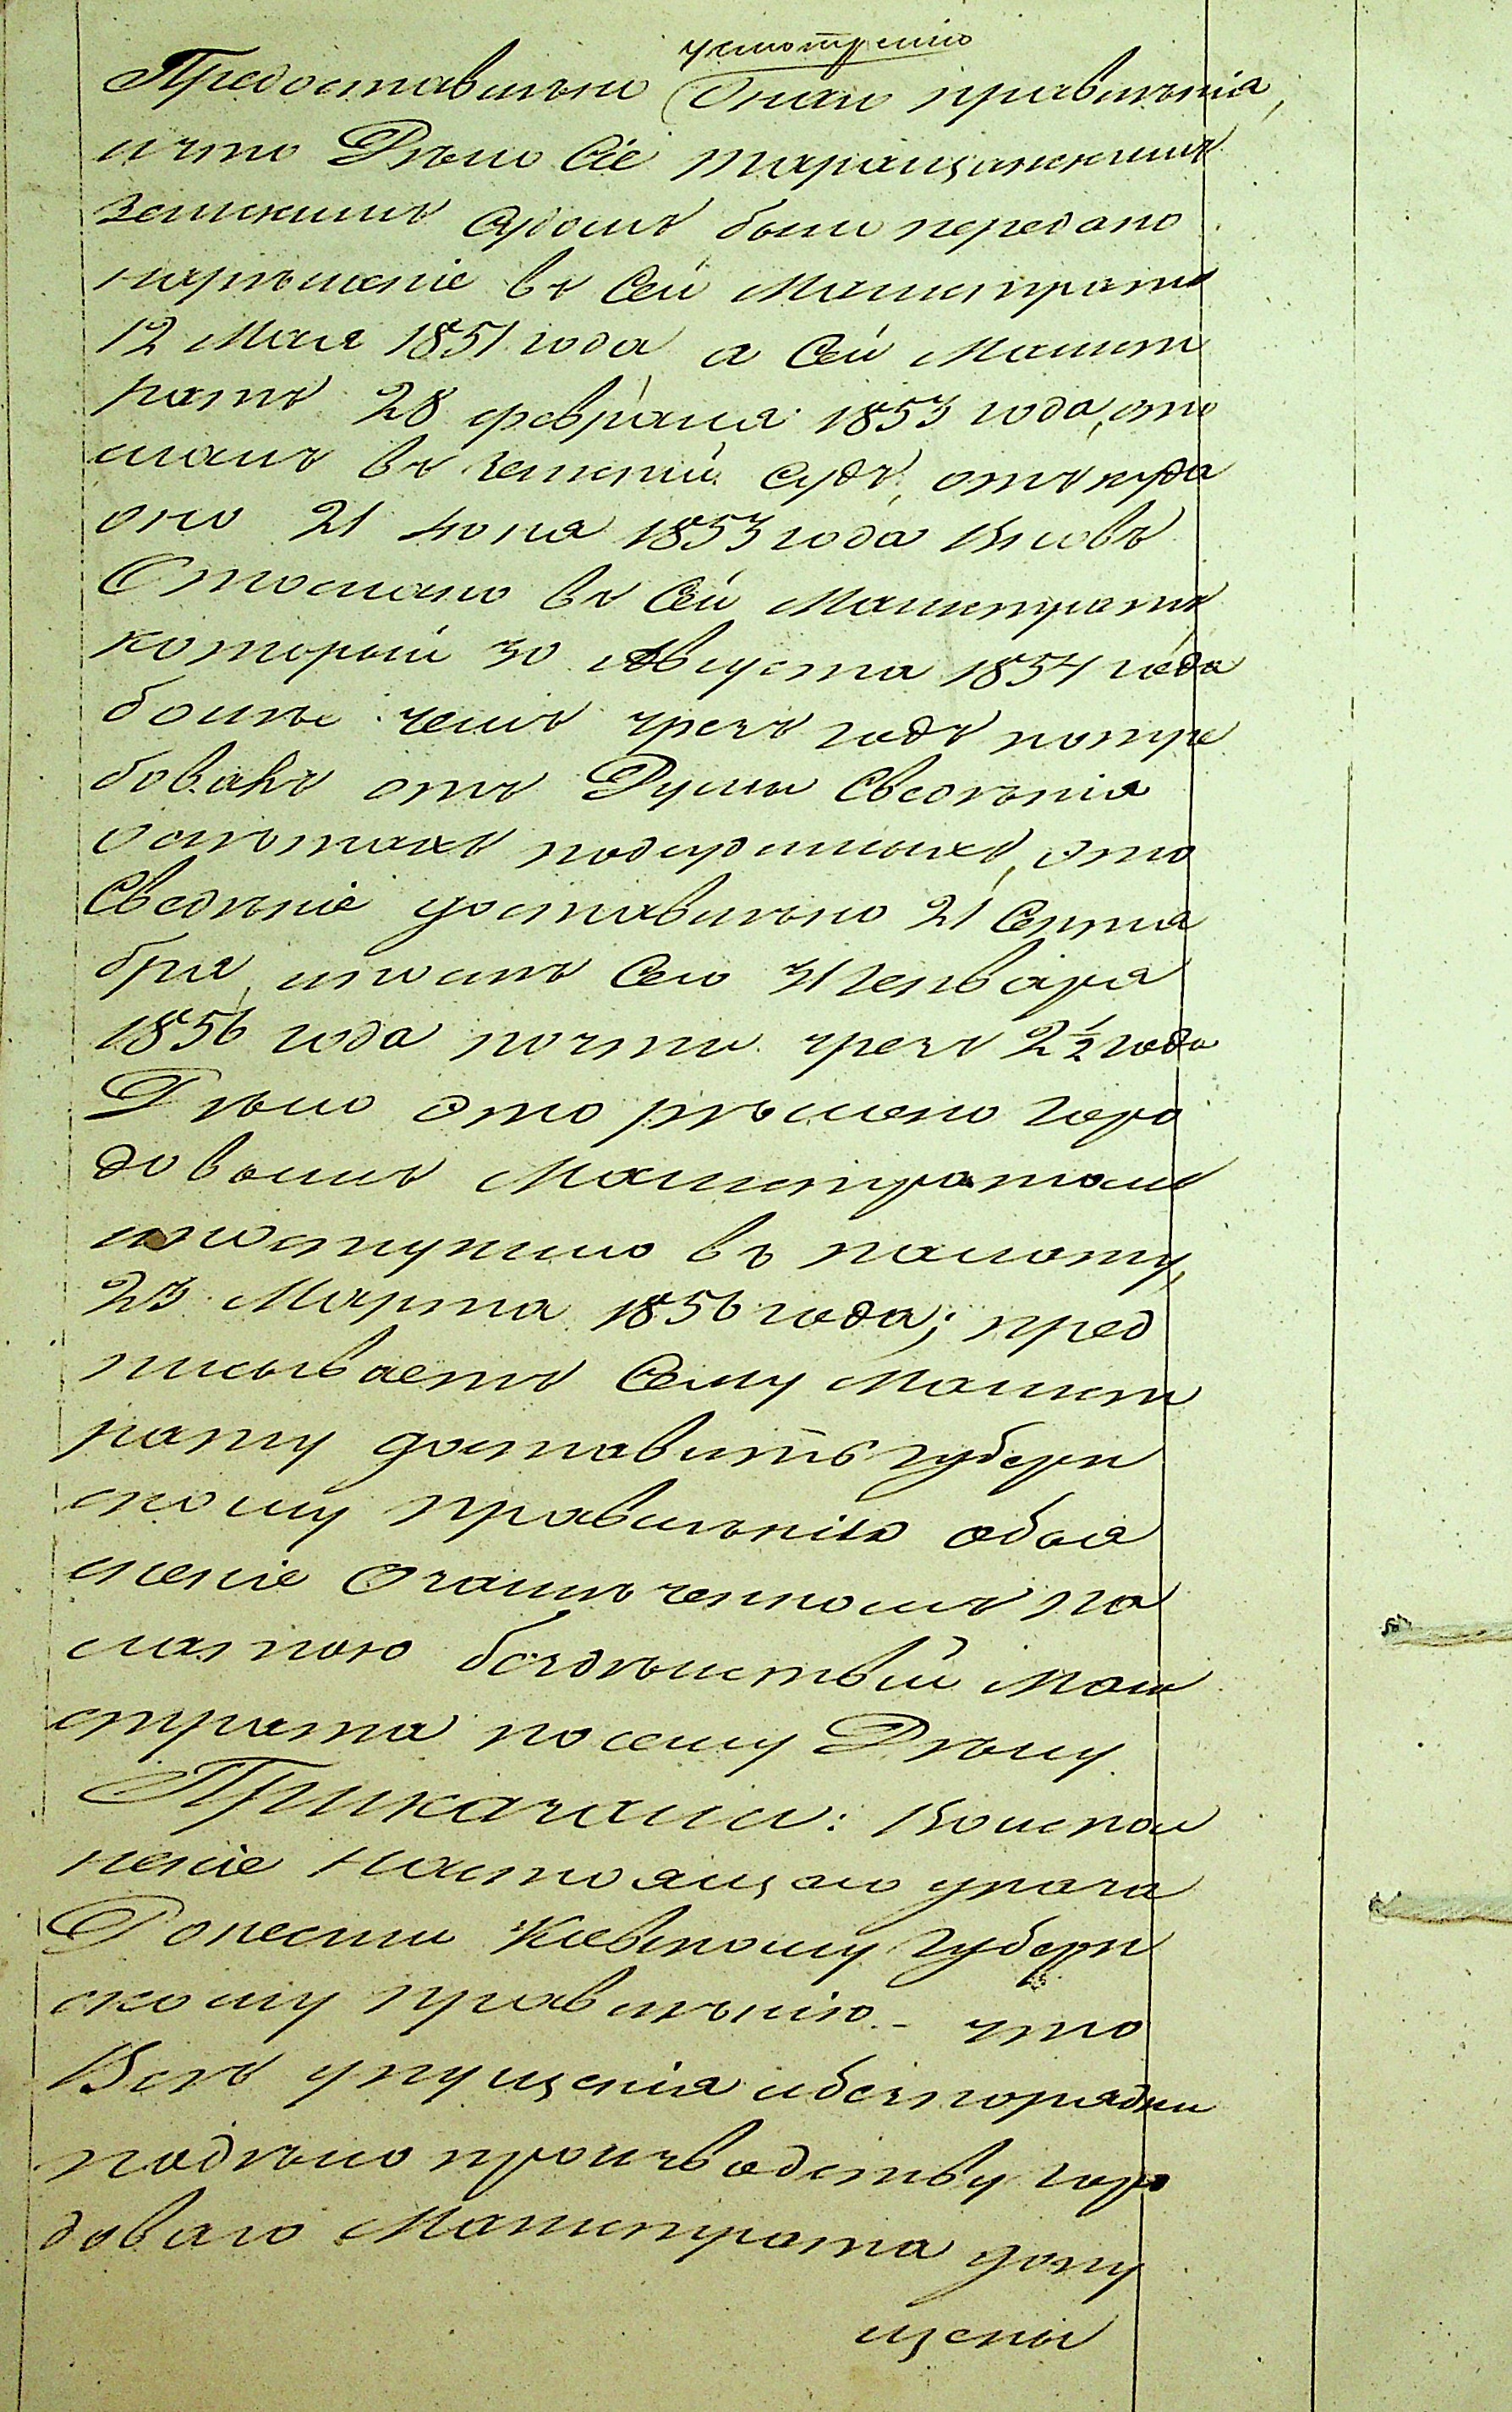 усмотренію
Предоставилъ Онаго правленія,
ичто Дѣло Сіе таращанскимъ
земскимъ Судомъ было передано
нарѣшеніе въ Сей Магистратъ
12 Мая 1851 года, а Сей Магист
ратъ 28 февраля 1853 года, ото
слалъ въ земскій Судъ, отъ куда
оно 21 Іюня 1853 года Вновь
Отослано въ Сей Магистратъ
который 30 Августа 1854 года
болѣе чемъ чрезъ годъ потре
бовавъ отъ Думы Сведѣнія
олѣтахъ подсудимыхъ, это
Сведѣніе доставлѣно 21 Сентя
бря, апослѣ Сего 31 генваря
1856 года почти чрезъ 2½ года
Дѣло это рѣшено горо
довымъ Магистратомъ
ипоступило въ палату,
23 Марта 1856 года; пред
писываетъ Сему Магист
рату доставить губерн
скому правилѣнію объя
сненіе Озамѣченномъ па
латою бездѣйствій Маги
страта посему Дѣлу.
Приказали: Воиспол
неніе Настоящаго указа
Донести Кіевскому Губерн
скому правлѣнію. - что
Всѣ упущенія ибезпорядки
подѣлопроизводству горо
доваго Магистрата допу
щены